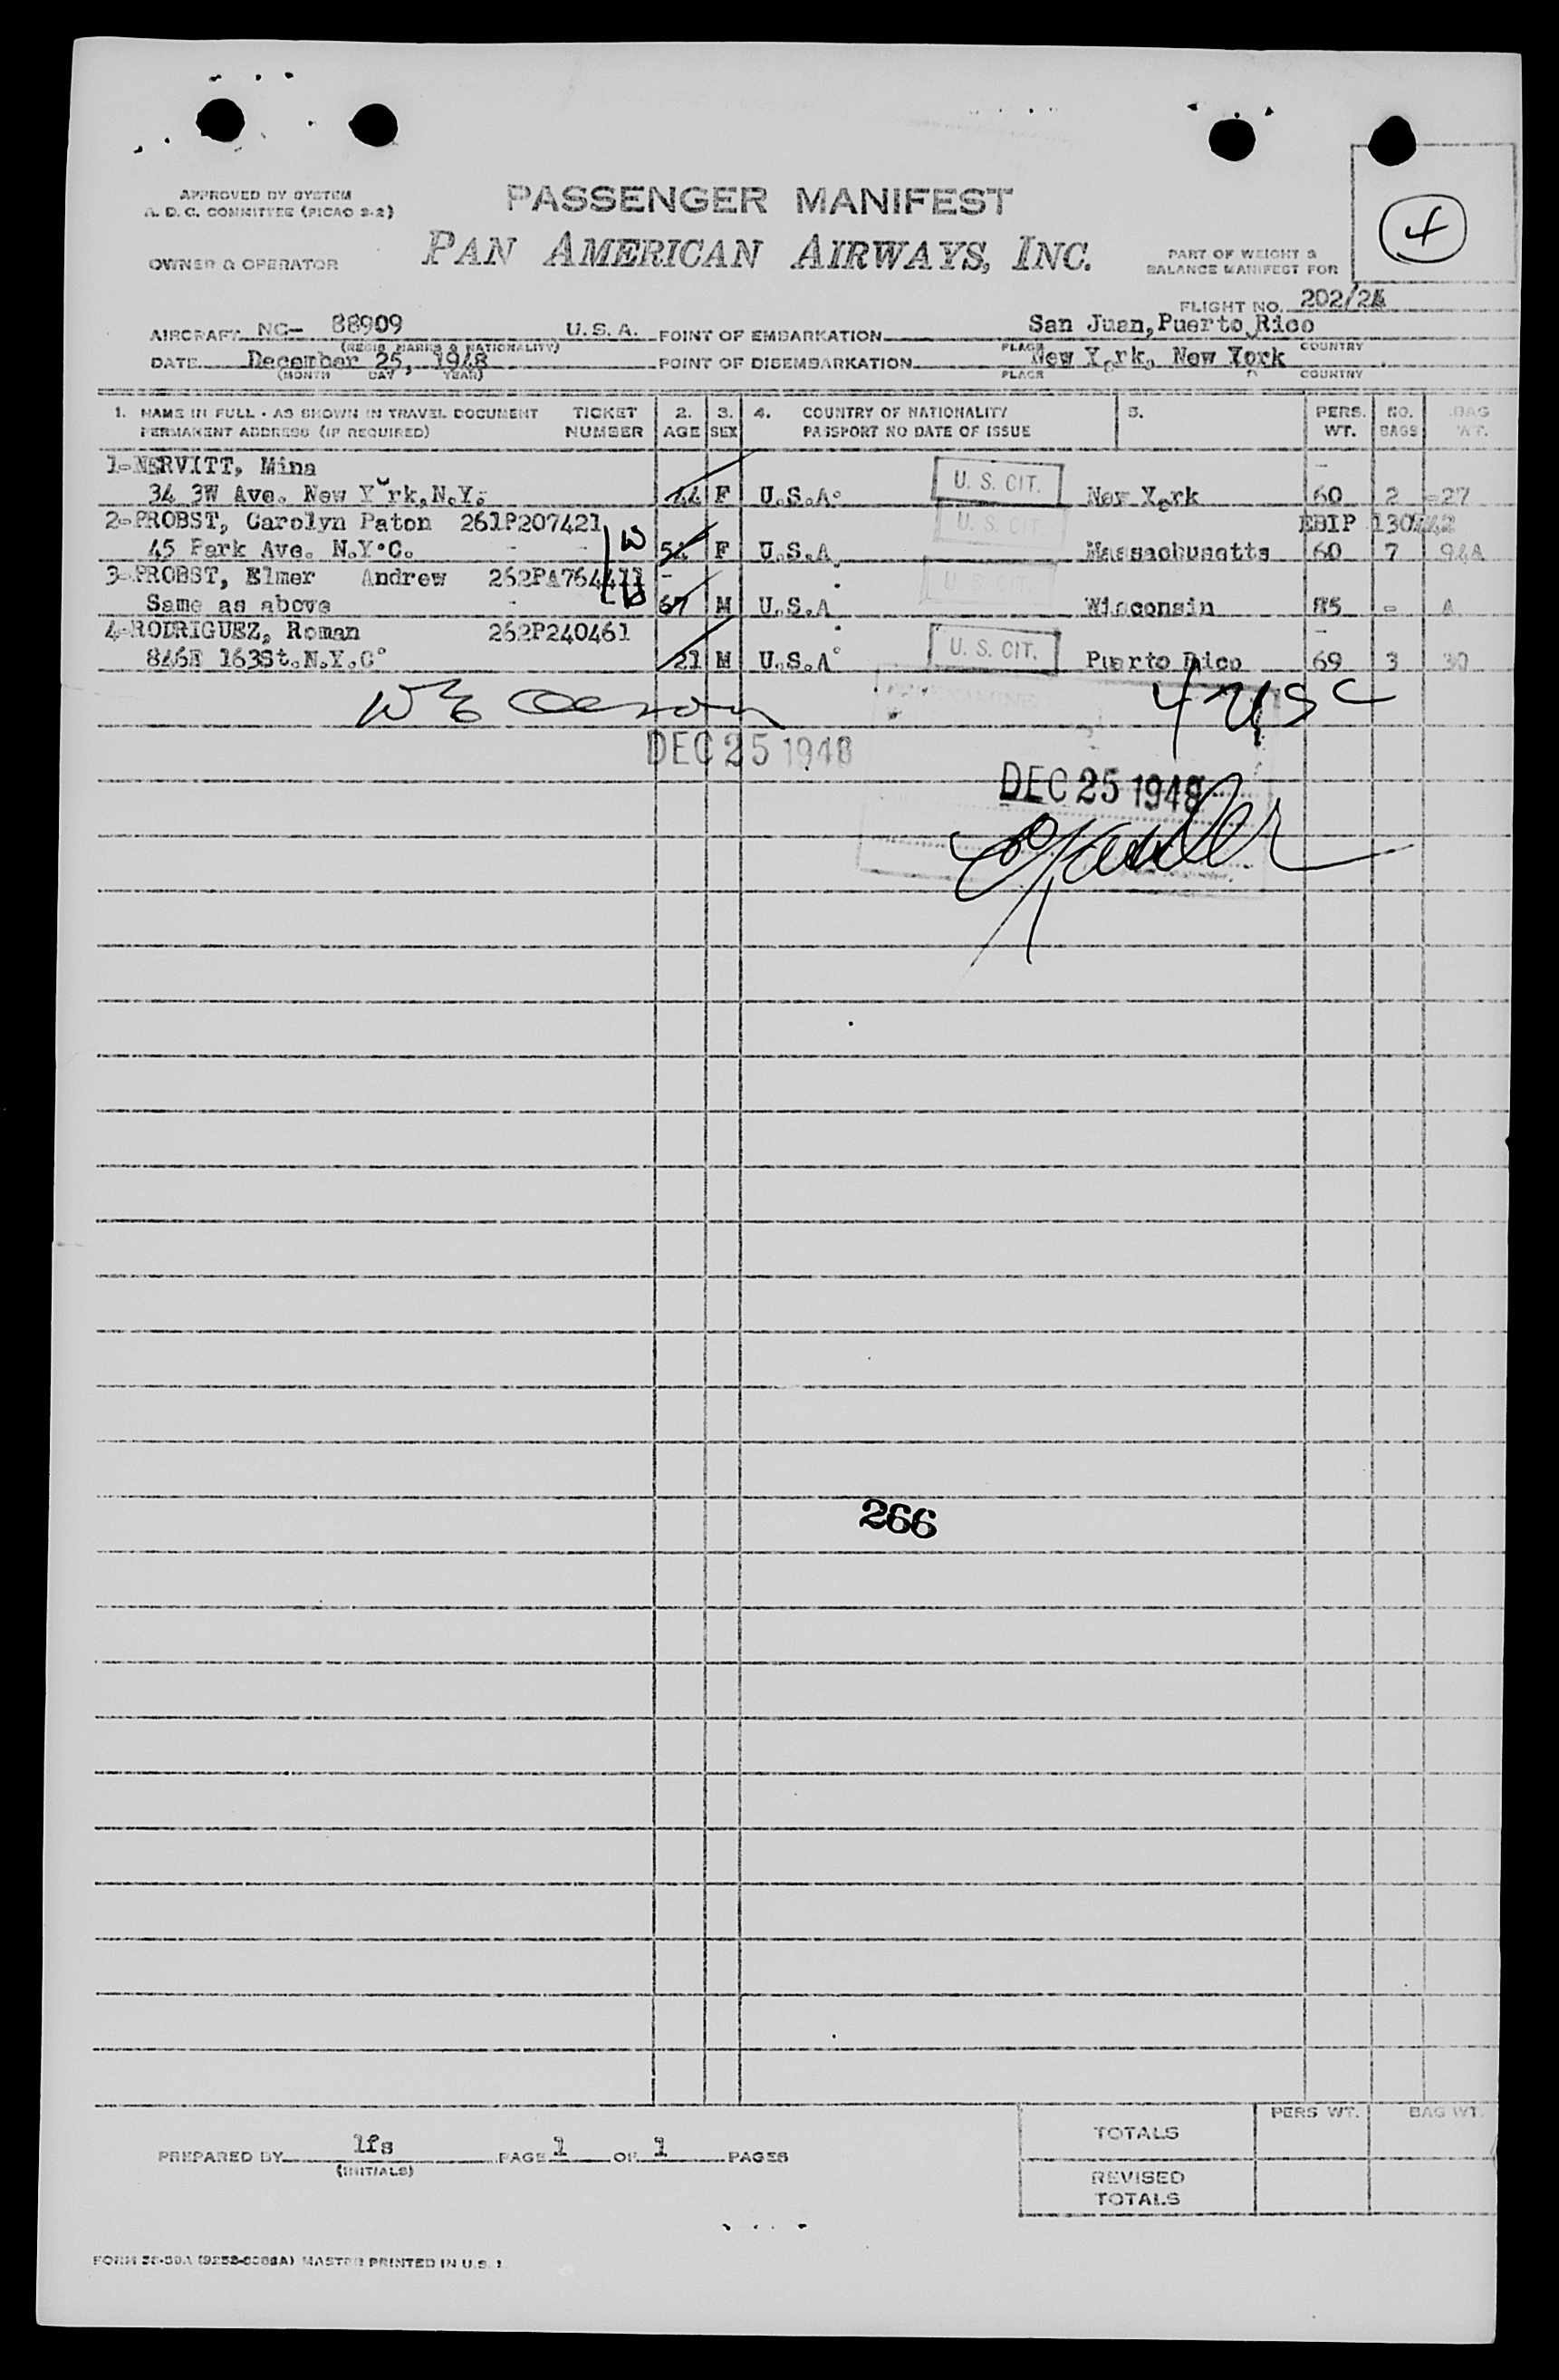 APPROVED BY SYSTEM
A. D. C. COMMITTEE (PICAO 2-2)
PASSENGER MANIFEST
PAN AMERICAN AIRWAYS, INC.
OWNER & OPERATOR
PART OF WEIGHT &
BALANCE MANIFEST FOR
4
FLIGHT NO. 202/24
AIRCRAFT NC- 88909 U.S.A. POINT OF EMBARKATION San Juan, Puerto Rico
(REGIS MARKS & NATIONALITY) PLACE COUNTRY
DATE December 25, 1948 POINT OF DISEMBARKATION New York, New York
(MONTH DAY YEAR) PLACE COUNTRY
1. NAME IN FULL - AS SHOWN IN TRAVEL DOCUMENT TICKET 2. 3. 4. COUNTRY OF NATIONALITY 5. PERS. NO. BAG
PERMANENT ADDRESS (IF REQUIRED) NUMBER AGE SEX PASSPORT NO DATE OF ISSUE WT. BAGS WT.
1-NERVITT, Mina
34 3W Ave. New York, N.Y. 44 F U.S.A. U. S. CIT. New York 60 2 -27
2-PROBST, Carolyn Paton 261P207421 U. S. CIT EBIP
45 Park Ave. N.Y.C. F U.S.A. Massachusetts 60 7 94A
3-PROBST, Elmer Andrew U. S. CIT.
Same as above 67 M U.S.A. Wisconsin 85 - A
4-RODRIGUEZ, Roman 262P240461
846E 163St.N.Y.C. 21 M U.S.A. U. S. CIT. Puerto Rico 69 3 30
4 USC
DEC 25 1948
DEC 25 1948
266
PREPARED BY lfs PAGE 1 OF 1 PAGES
(INITIALS)
PERS WT. BAG WT.
TOTALS
REVISED
TOTALS
MASTER PRINTED IN U.S.